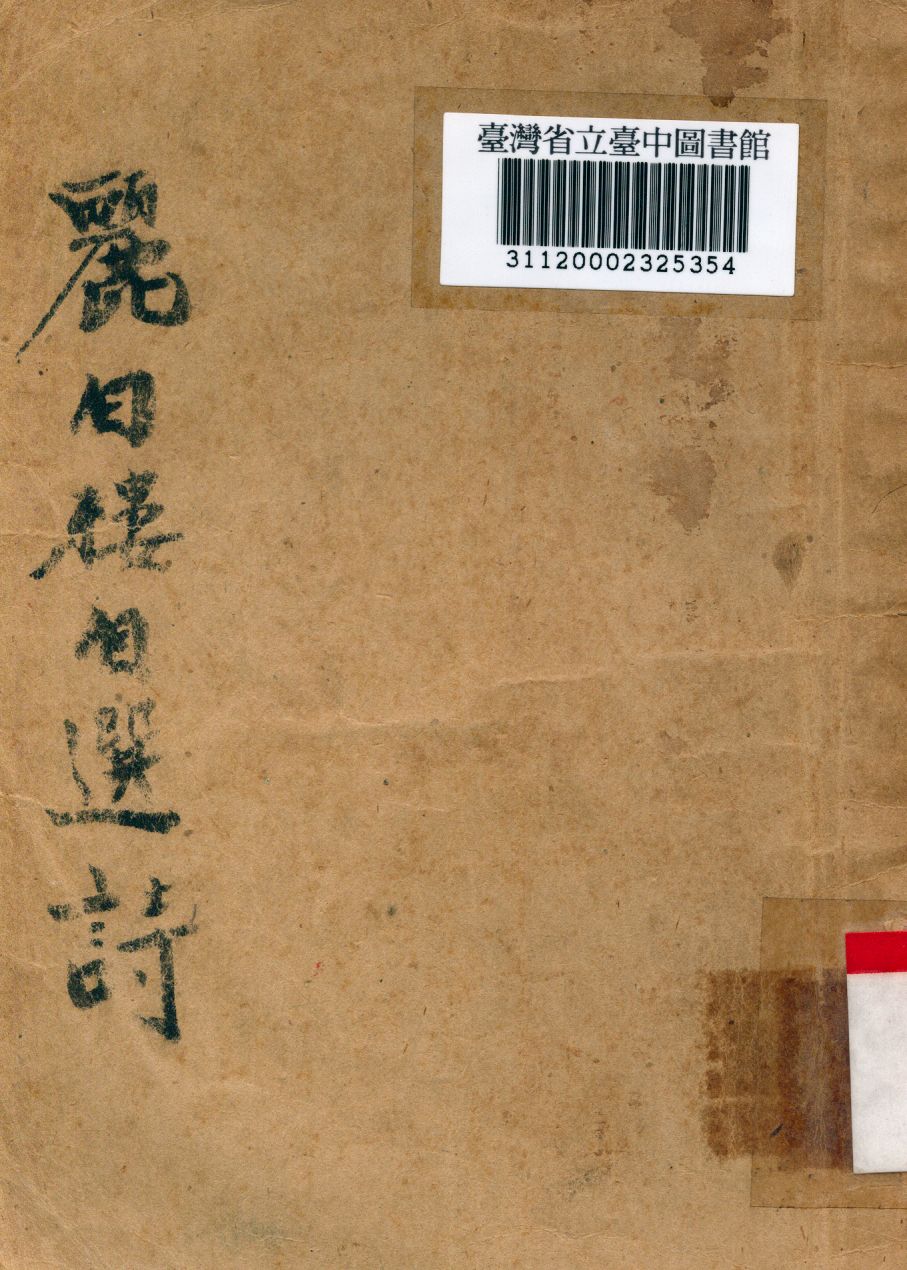 臺灣省立臺中圖書館
31120002325354
麗日樓自選詩